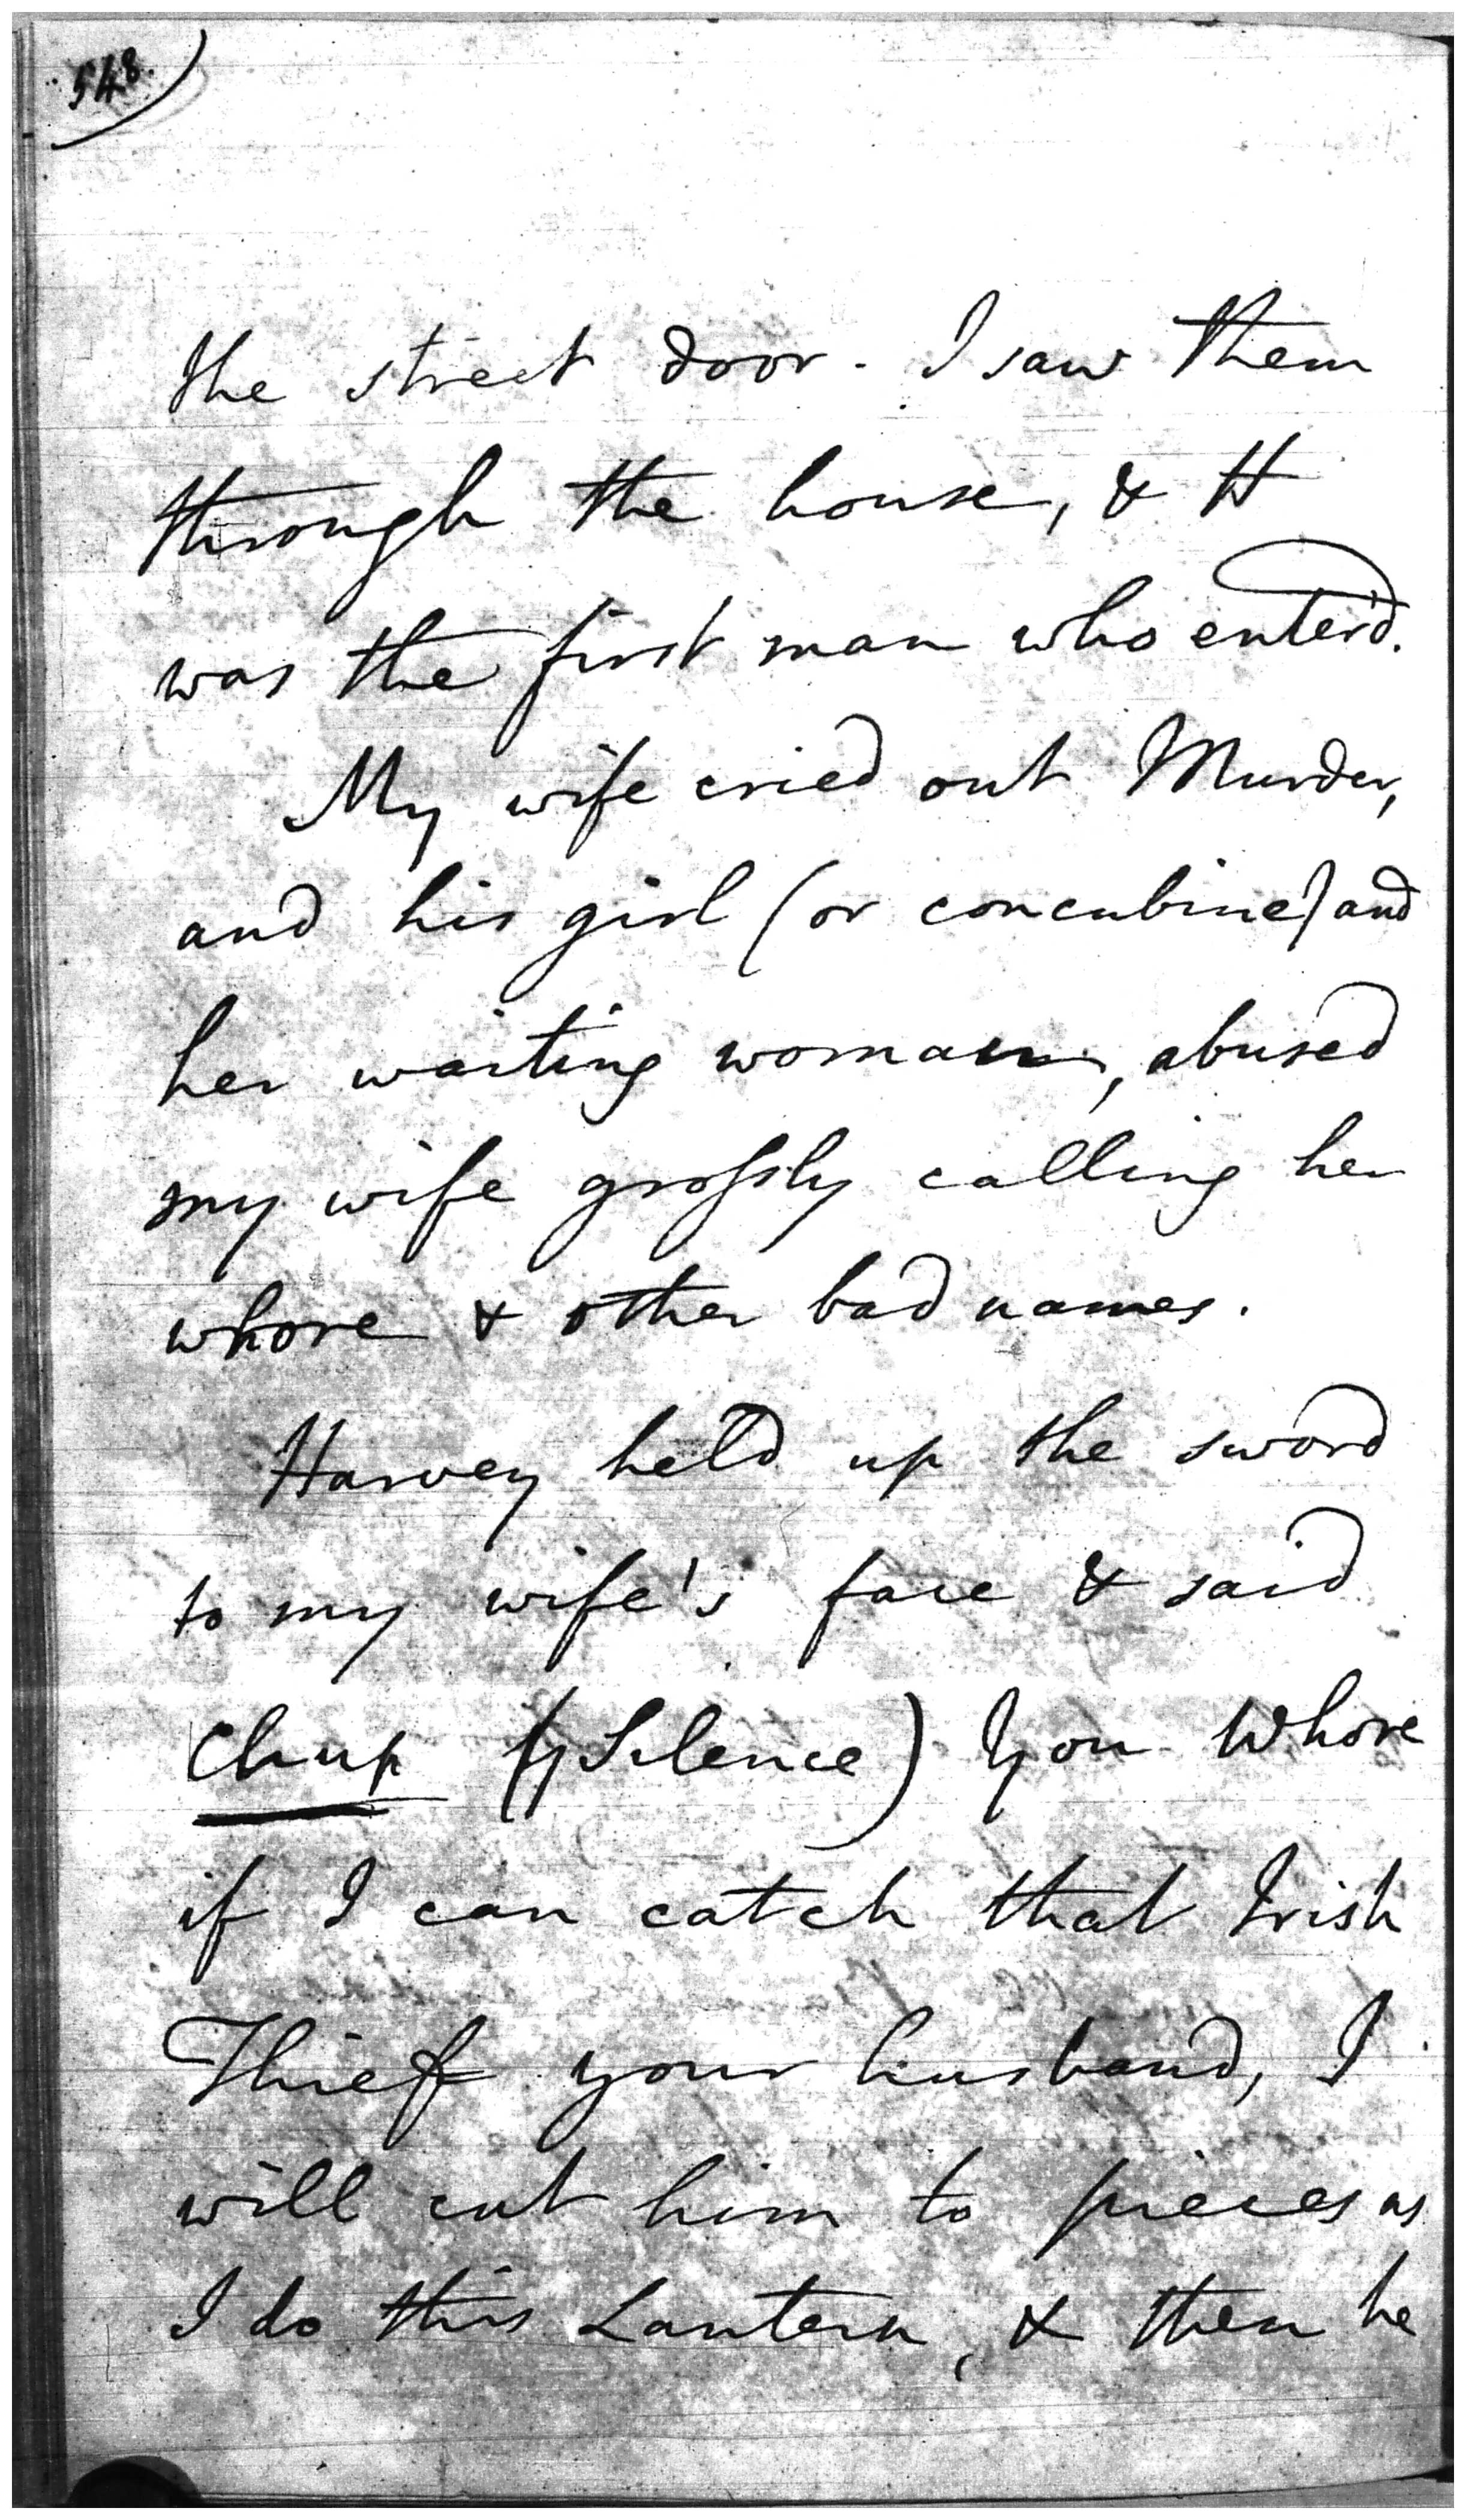 548.
the street door. I saw them
through the house, & H
was the first man who enter'd.
My wife cried out Murder,
and his girl (or concubine) and
her waiting woman, abused
my wife grossly calling her
whore & other bad names.
Harvey held up the sword
to my wife's face & said
Chup (Silence) You Whore
if I can catch that Irish
Thief your husband, I
will cut him to pieces as
I do this Lantern, & then he